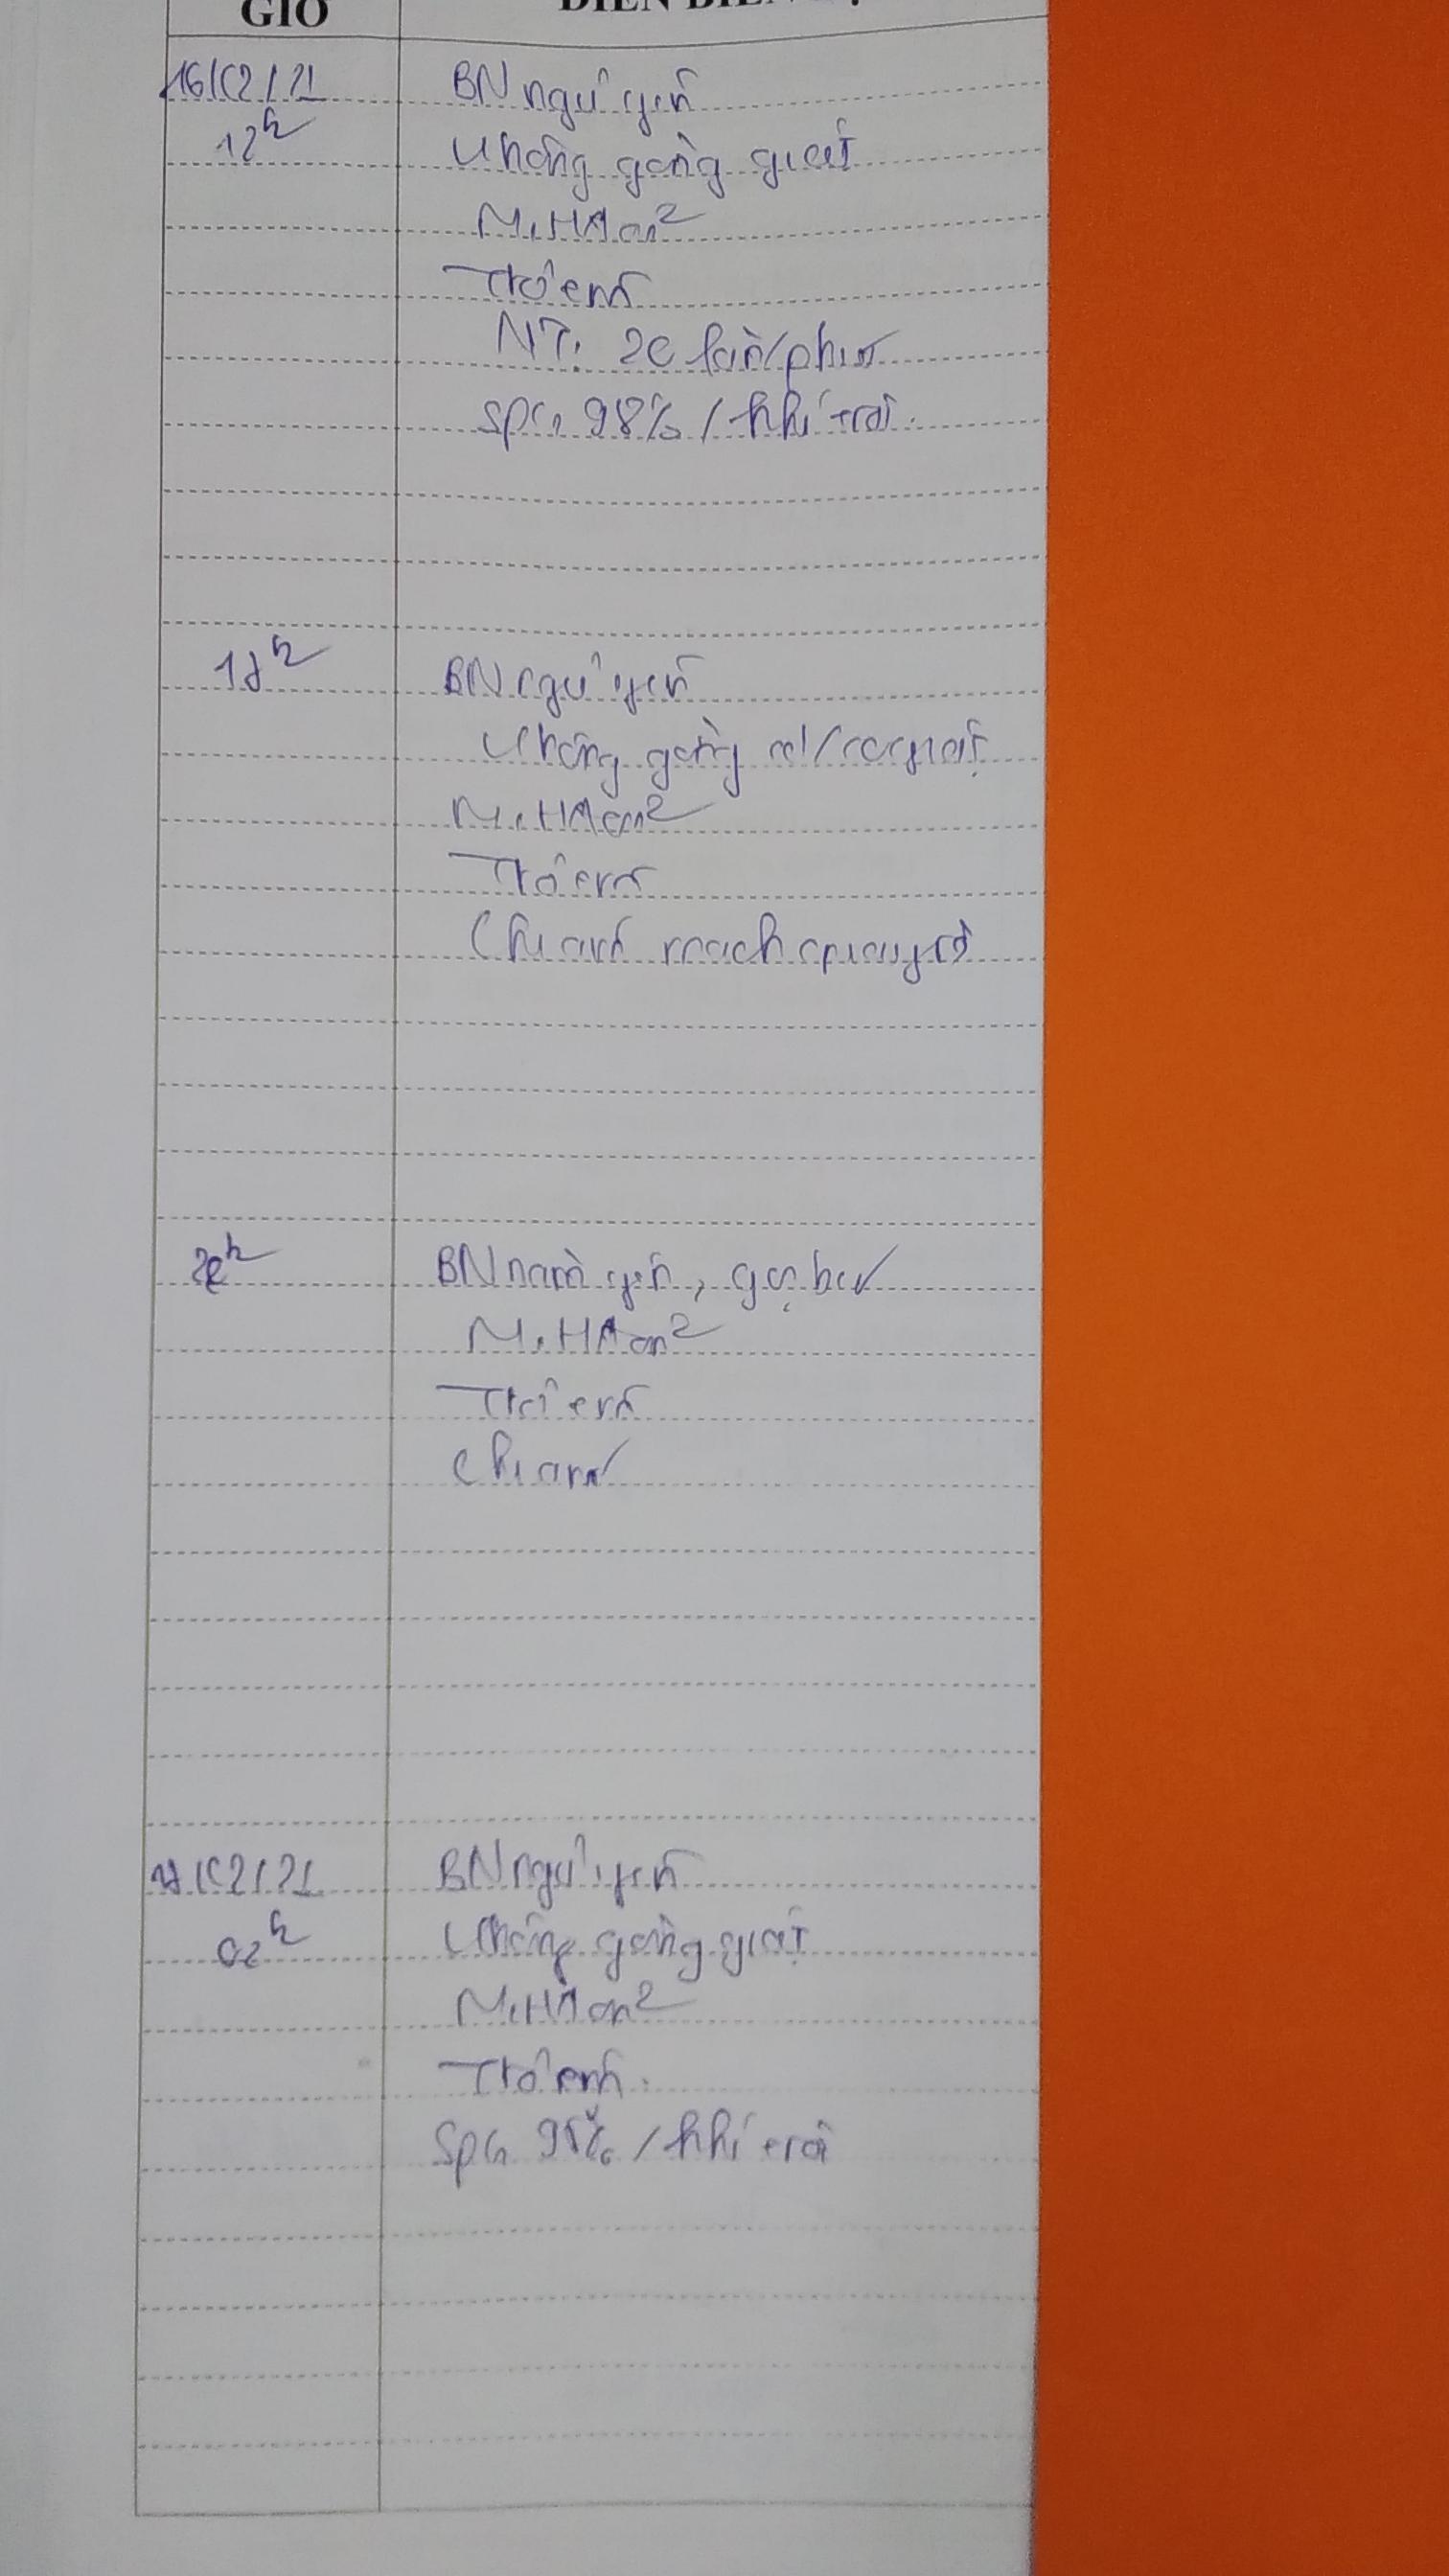 GIỜ
DIỄN BIẾN
16/02/21
12h
BN ngủ yên
Không gồng giật
M, HA ổn
Thở êm
NT: 20 lần/phút
SpO2 98% / khí trời.
BN ngủ yên
Không gồng
M, HA ổn
Thở êm
Chi ấm mạch quay rõ
BN nằm yên, gọi biết
M, HA ổn
Thở êm
Chi ấm
/02/21
02h
BN ngủ yên
Không gồng giật
M, HA ổn
Thở êm.
/ khí trời